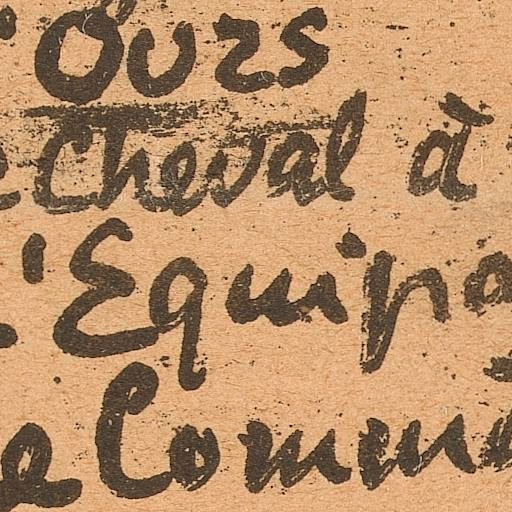 'Ours
e cheval à
l'Equipa
e Comme